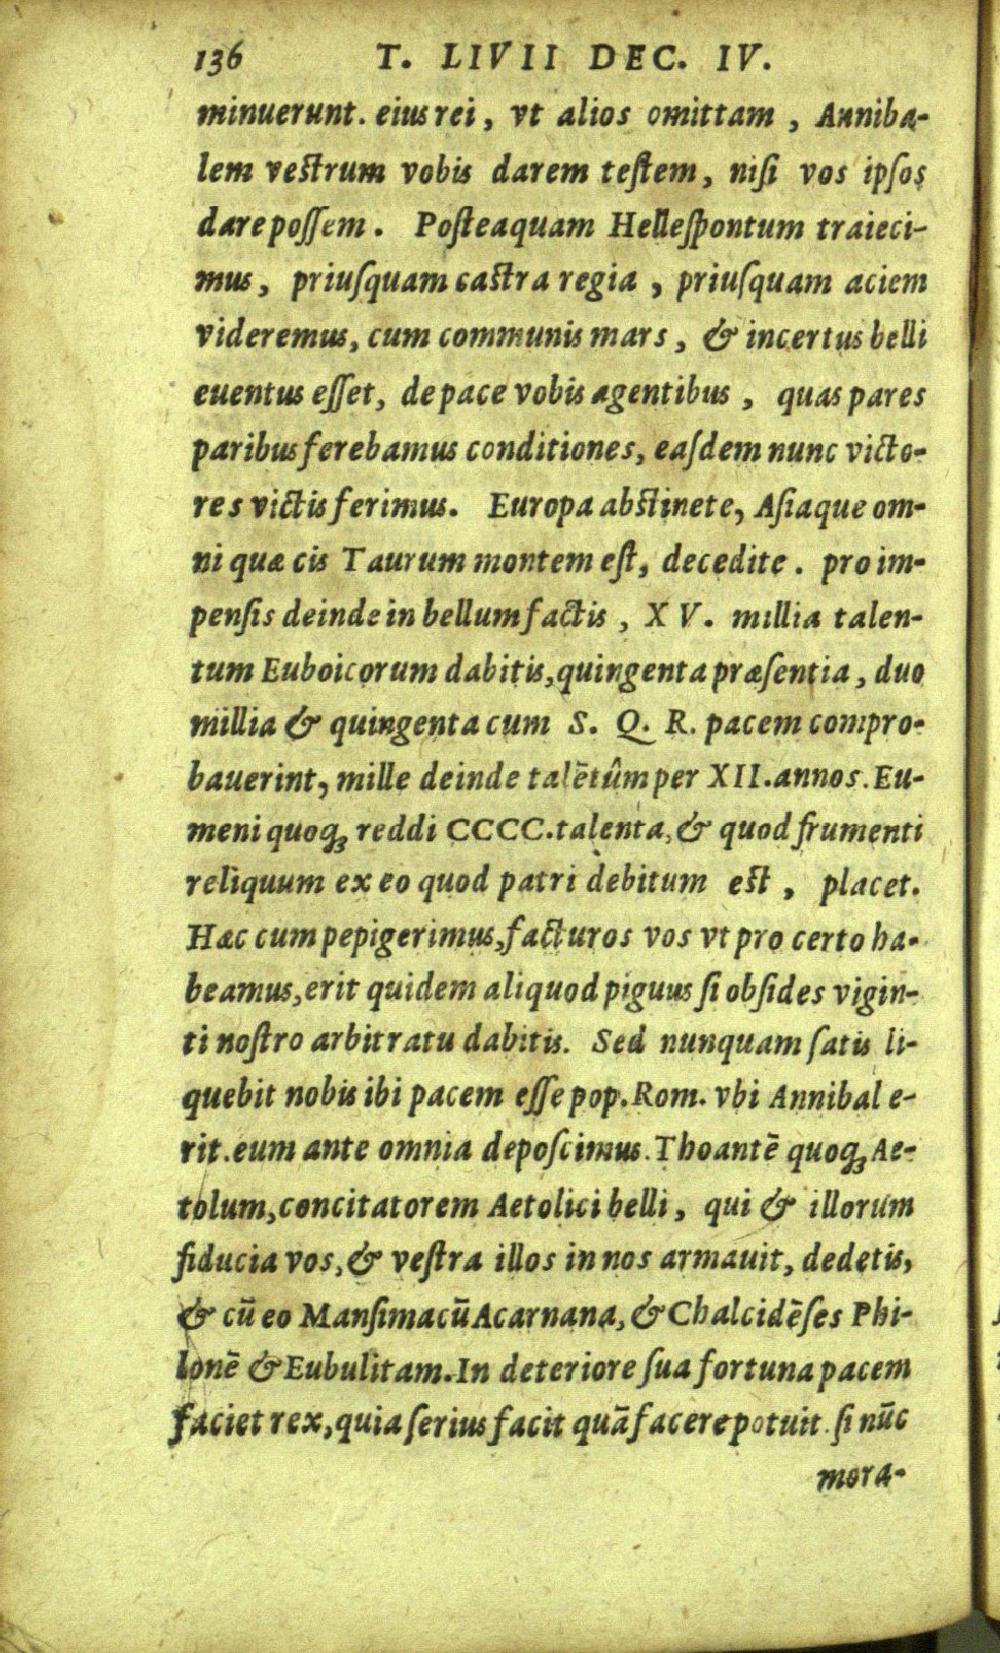 136 T. LIVII DEC. IV.
minuerunt. eius rei, vt alios omittam, Anniba-
lem vestrum vobis darem teſtem, niſi vos ipſos
dare poſſem. Poſteaquam Helleſpontum traieci-
mus, priuſquam castra regia, priuſquam aciem
videremus, cum communis mars, & incertus belli
euentus eſſet, de pace vobis agentibus, quas pares
paribus ferebamus conditiones, eaſdem nunc victo-
res victis ferimus. Europa abstinete, Aſiaque om-
ni quæ cis Taurum montem eſt, decedite. pro im-
penſis deinde in bellum factis, XV. millia talen-
tum Euboicorum dabitis, quingenta præſentia, duo
millia & quingenta cum S. Q. R. pacem compro-
bauerint, mille deinde talētûm per XII. annos. Eu-
meni quoq; reddi CCCC. talenta, & quod frumenti
reliquum ex eo quod patri debitum est, placet.
Hæc cum pepigerimus, facturos vos vt pro certo ha-
beamus, erit quidem aliquod piguus ſi obſides vigin-
ti noſtro arbitratu dabitis. Sed nunquam ſatis li-
quebit nobis ibi pacem eſſe pop. Rom. vbi Annibal e-
rit. eum ante omnia depoſcimus. Thoantē quoq; Ae-
tolum, concitatorem Aetolici belli, qui & illorum
fiducia vos, & veſtra illos in nos armauit, dedetis,
& cū eo Manſimacū Acarnana, & Chalcidēſes Phi-
lonē & Eubulitam. In deteriore ſua fortuna pacem
faciet rex, quia ſerius facit quā facere potuit. ſi nūc
mora-